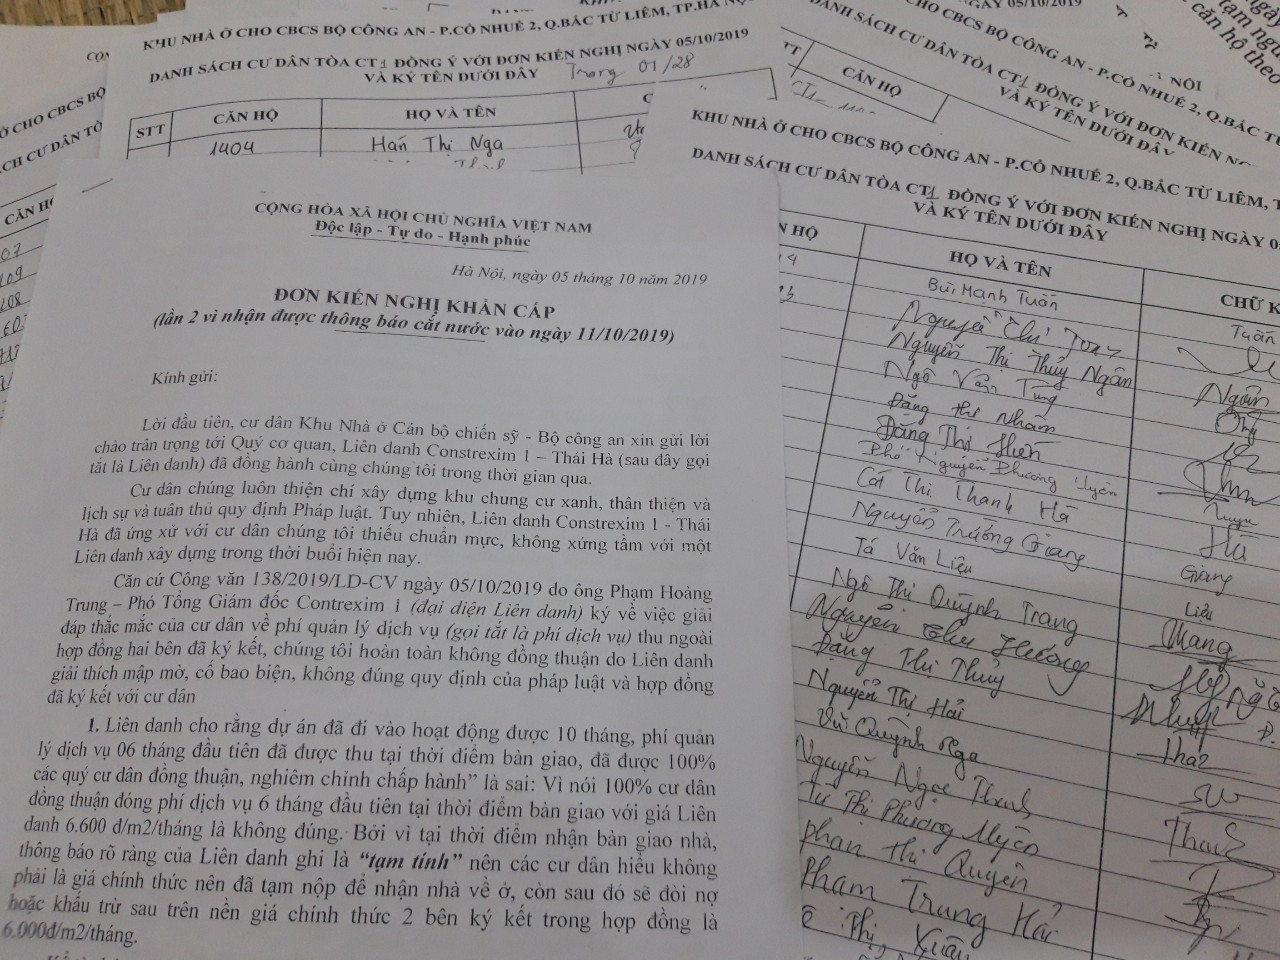 CỘN
Ở CHO CBCS BỘ
CH CƯ DÂN TÒ
CĂN HỘ
07
KHU NHÀ Ở CHO CBCS BỘ CÔNG AN - P.CỔ NHUẾ 2, Q.BẮC TỪ LIÊM, TP.HÀ NỘ
DANH SÁCH CƯ DÂN TÒA CT1 ĐỒNG Ý VỚI ĐƠN KIẾN NGHỊ NGÀY 05/10/2019
VÀ KÝ TÊN DƯỚI ĐÂY Trang 01/28
STT CĂN HỘ HỌ VÀ TÊN C
1404 Hán Thị Nga
GÀY 05/10/2019
CHO CBCS BỘ CÔNG AN - P.CỔ NHUẾ 2, Q.BẮC TỪ
DANH SÁCH CƯ DÂN TÒA CT1 ĐỒNG Ý VỚI ĐƠN KIẾN NG
VÀ KÝ TÊN DƯỚI ĐÂY
TT CĂN HỘ
NỘI
ngày
tạm ngu
căn hộ theo
KHU NHÀ Ở CHO CBCS BỘ CÔNG AN - P.CỔ NHUẾ 2, Q.BẮC TỪ LIÊM, T
DANH SÁCH CƯ DÂN TÒA CT1 ĐỒNG Ý VỚI ĐƠN KIẾN NGHỊ NGÀY 0
VÀ KÝ TÊN DƯỚI ĐÂY
N HỘ HỌ VÀ TÊN CHỮ K
Bùi Mạnh Tuấn Tuấn
Nguyễn Chí
Nguyễn Thị Thủy Ngân Ngân
Ngô Văn Tùng
Đặng thị nhâm
Đặng Thị Hiền
Phó Nguyễn Phương Uyên
Cát Thị Thanh Hà Hà
Nguyễn Trường Giang Giang
Tá Văn Liệu Liệu
Ngô Thị Quỳnh Trang Trang
Nguyễn Thu Hương
Đặng Thị Thủy
Nguyễn Thị Hải
Vũ Quỳnh Nga
Nguyễn Ngọc Thanh
Từ Thị Phương Uyên
phan thị Quyên
Phạm Trung Hải
Thị Xuân
CỘNG HÒA XÃ HỘI CHỦ NGHĨA VIỆT NAM
Độc lập - Tự do - Hạnh phúc
Hà Nội, ngày 05 tháng 10 năm 2019
ĐƠN KIẾN NGHỊ KHẨN CẤP
(lần 2 vì nhận được thông báo cắt nước vào ngày 11/10/2019)
Kính gửi:
Lời đầu tiên, cư dân Khu Nhà ở Cán bộ chiến sỹ - Bộ công an xin gửi lời
chào trân trọng tới Quý cơ quan, Liên danh Constrexim 1 – Thái Hà (sau đây gọi
tắt là Liên danh) đã đồng hành cùng chúng tôi trong thời gian qua.
Cư dân chúng luôn thiện chí xây dựng khu chung cư xanh, thân thiện và
lịch sự và tuân thủ quy định Pháp luật. Tuy nhiên, Liên danh Constrexim 1 - Thái
Hà đã ứng xử với cư dân chúng tôi thiếu chuẩn mực, không xứng tầm với một
Liên danh xây dựng trong thời buổi hiện nay.
Căn cứ Công văn 138/2019/LD-CV ngày 05/10/2019 do ông Phạm Hoàng
Trung – Phó Tổng Giám đốc Contrexim 1 (đại diện Liên danh) ký về việc giải
đáp thắc mắc của cư dân về phí quản lý dịch vụ (gọi tắt là phí dịch vụ) thu ngoài
hợp đồng hai bên đã ký kết, chúng tôi hoàn toàn không đồng thuận do Liên danh
giải thích mập mờ, cố bao biện, không đúng quy định của pháp luật và hợp đồng
đã ký kết với cư dân
1. Liên danh cho rằng dự án đã đi vào hoạt động được 10 tháng, phí quản
lý dịch vụ 06 tháng đầu tiên đã được thu tại thời điểm bàn giao, đã được 100%
các quý cư dân đồng thuận, nghiêm chỉnh chấp hành” là sai: Vì nói 100% cư dân
đồng thuận đóng phí dịch vụ 6 tháng đầu tiên tại thời điểm bàn giao với giá Liên
danh 6.600 đ/m2/tháng là không đúng. Bởi vì tại thời điểm nhận bàn giao nhà,
thông báo rõ ràng của Liên danh ghi là “tạm tính” nên các cư dân hiểu không
phải là giá chính thức nên đã tạm nộp để nhận nhà về ở, còn sau đó sẽ đòi nợ
hoặc khấu trừ sau trên nền giá chính thức 2 bên ký kết trong hợp đồng là
6.000đ/m2/tháng.